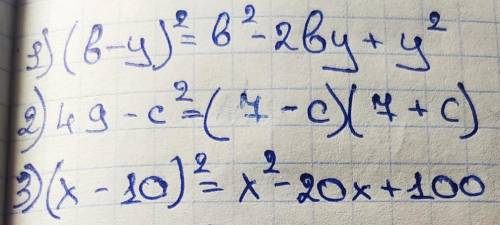 1) (в-y)² = в² - 2вy + y²
2) 49 - c² = (7 - c)(7 + c)
3) (x - 10)² = x² - 20x + 100